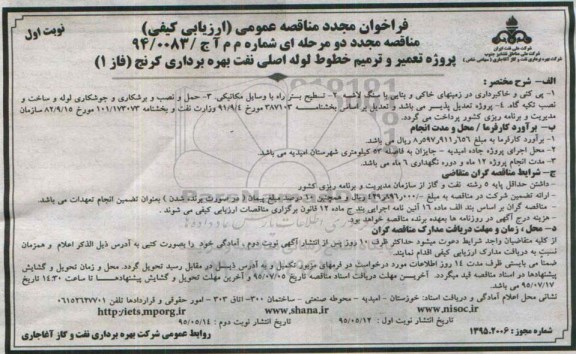 نوبت اول
فراخوان مجدد مناقصه عمومی (ارزیابی کیفی)
مناقصه مجدد دو مرحله ای شماره م م آ ج / ۹۴/۰۰۸۳
پروژه تعمیر و ترمیم خطوط لوله اصلی نفت بهره برداری کرنج (فاز ۱)
شرکت ملی نفت ایران
شرکت ملی مناطق نفتخیز جنوب
شرکت بهره برداری نفت و گاز آغاجاری (سهامی خاص)
الف- شرح مختصر:
۱- پی کنی و خاکبرداری در زمینهای خاکی و بتابن با سنگ لاشیه ۲- تسطیح بستر راه با وسایل مکانیکی. ۳- حمل و نصب و برشکاری و جوشکاری لوله و ساخت و
نصب تکیه گاه. ۴- پروژه تعدیل پذیر می باشد و تعدیل بر اساس بخشنامه ۳۸۷۱۰۳ مورخ ۹۱/۹/۴ وزارت نفت و بخشنامه ۱۰۱/۱۷۳۰۷۳ مورخ ۸۲/۹/۱۵ سازمان
مدیریت و برنامه ریزی کشور پرداخت می گردد.
ب- برآورد کارفرما / محل و مدت انجام
۱- برآورد کارفرما به مبلغ ۸٫۵۹۷٫۹۱۱٫۶۵۶ ریال می باشد.
۲- محل اجرای پروژه جاده امیدیه - جایزان به فاصله ۵۳ کیلومتری شهرستان امیدیه می باشد.
۳- مدت انجام پروژه ۱۲ ماه و دوره نگهداری ۶ ماه می باشد.
ج- شرایط مناقصه گران متقاضی
- داشتن حداقل پایه ۵ رشته نفت و گاز از سازمان مدیریت و برنامه ریزی کشور
- ارائه تضمین شرکت در مناقصه به مبلغ ریال و همچنین ۶۰ درصد مبلغ پیمان (در صورت برنده شدن) بعنوان تضمین انجام تعهدات می باشد.
- مناقصه گران بر اساس بند الف ماده ۱۶ آئین نامه اجرایی بند ج ماده ۱۲ قانون برگزاری مناقصات ارزیابی کیفی می شوند.
- هزینه درج آگهی در روزنامه ها بعهده برنده مناقصه خواهد بود.
د- محل / زمان و مهلت دریافت مدارک مناقصه گران
از کلیه متقاضیان واجد شرایط دعوت میشود حداکثر ظرف ۱۰ روز پس از انتشار آگهی نوبت دوم، آمادگی خود را بصورت کتبی به آدرس ذیل الذکر اعلام و همزمان
نسبت به دریافت مدارک ارزیابی کیفی اقدام نمایند.
ضمنا می بایستی ظرف مدت ۱۴ روز اطلاعات مورد درخواست در فرمهای مزبور تکمیل و به آدرس ذیل در مقابل رسید تحویل گردد. محل و زمان تحویل و گشایش
پیشنهادها در اسناد مناقصه قید میگردد. آخرین مهلت دریافت اسناد مناقصه تاریخ ۹۵/۰۷/۰۵ و آخرین مهلت تحویل و گشایش پیشنهادها تا ساعت ۱۴:۳۰ تاریخ
۹۵/۰۷/۱۷ می باشد.
نشانی محل اعلام آمادگی و دریافت اسناد: خوزستان - امیدیه - محوطه صنعتی - ساختمان ۳۰۰- اتاق ۳۰۳ - امور حقوقی و قراردادها تلفن ۰۶۱۵۲۶۲۷۷۰۱
http://iets.mporg.ir www.shana.ir www.nisoc.ir
تاریخ انتشار نوبت اول : ۹۵/۰۵/۱۲ تاریخ انتشار نوبت دوم : ۹۵/۰۵/۱۴
شماره مجوز : ۱۳۹۵.۲۰۰۶ روابط عمومی شرکت بهره برداری نفت و گاز آغاجاری